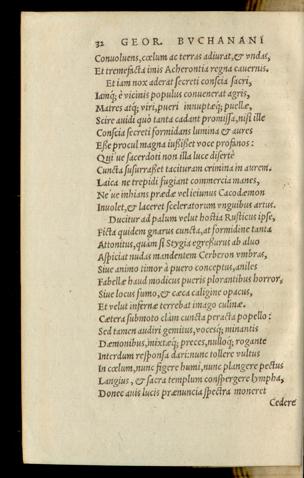 32 GEOR. BVCHANANI
Conuoluens, cœlum ac terras adiurat, & vndas,
Et tremefacta imis Acherontia regna cauernis.
Et iam nox aderat secreti conscia sacri,
Iamq; è vicinis populus conuenerat agris,
Matres atq; viri, pueri innuptæq; puellæ,
Scire auidi quò tanta cadant promissa, nisi ille
Conscia secreti formidans lumina & aures
Esse procul magna iußißet voce profanos:
Qui ue sacerdoti non illa luce disertè
Cuncta susurrasset tacituram crimina in aurem.
Laica ne trepidi fugiant commercia manes,
Ne´ue inhians prædæ vel iciunus Cacodæmon
Inuolet, & laceret sceleratorum vnguibus artus.
Ducitur ad palum velut hostia Rusticus ipse,
Ficta quidem gnarus cuncta, at formidine tanta
Attonitus, quàm si Stygia egreßurus ab aluo
Aspiciat nudas mandentem Cerberon vmbras,
Siue animo timor à puero conceptus, aniles
Fabellæ haud modicus pueris plorantibus horror,
Siue locus fumo, & cæca caligine opacus,
Et velut infernæ terrebat imago culinæ.
Cætera submoto clàm cuncta peracta popello:
Sed tamen audiri gemitus, vocesq; minantis
Dæmonibus, mixtæq; preces, nulloq; rogante
Interdum responsa dari: nunc tollere vultus
In cœlum, nunc figere humi, nunc plangere pectus
Langius, & sacra templum conspergere lympha,
Donec auis lucis prænuncia spectra moneret
Cedere